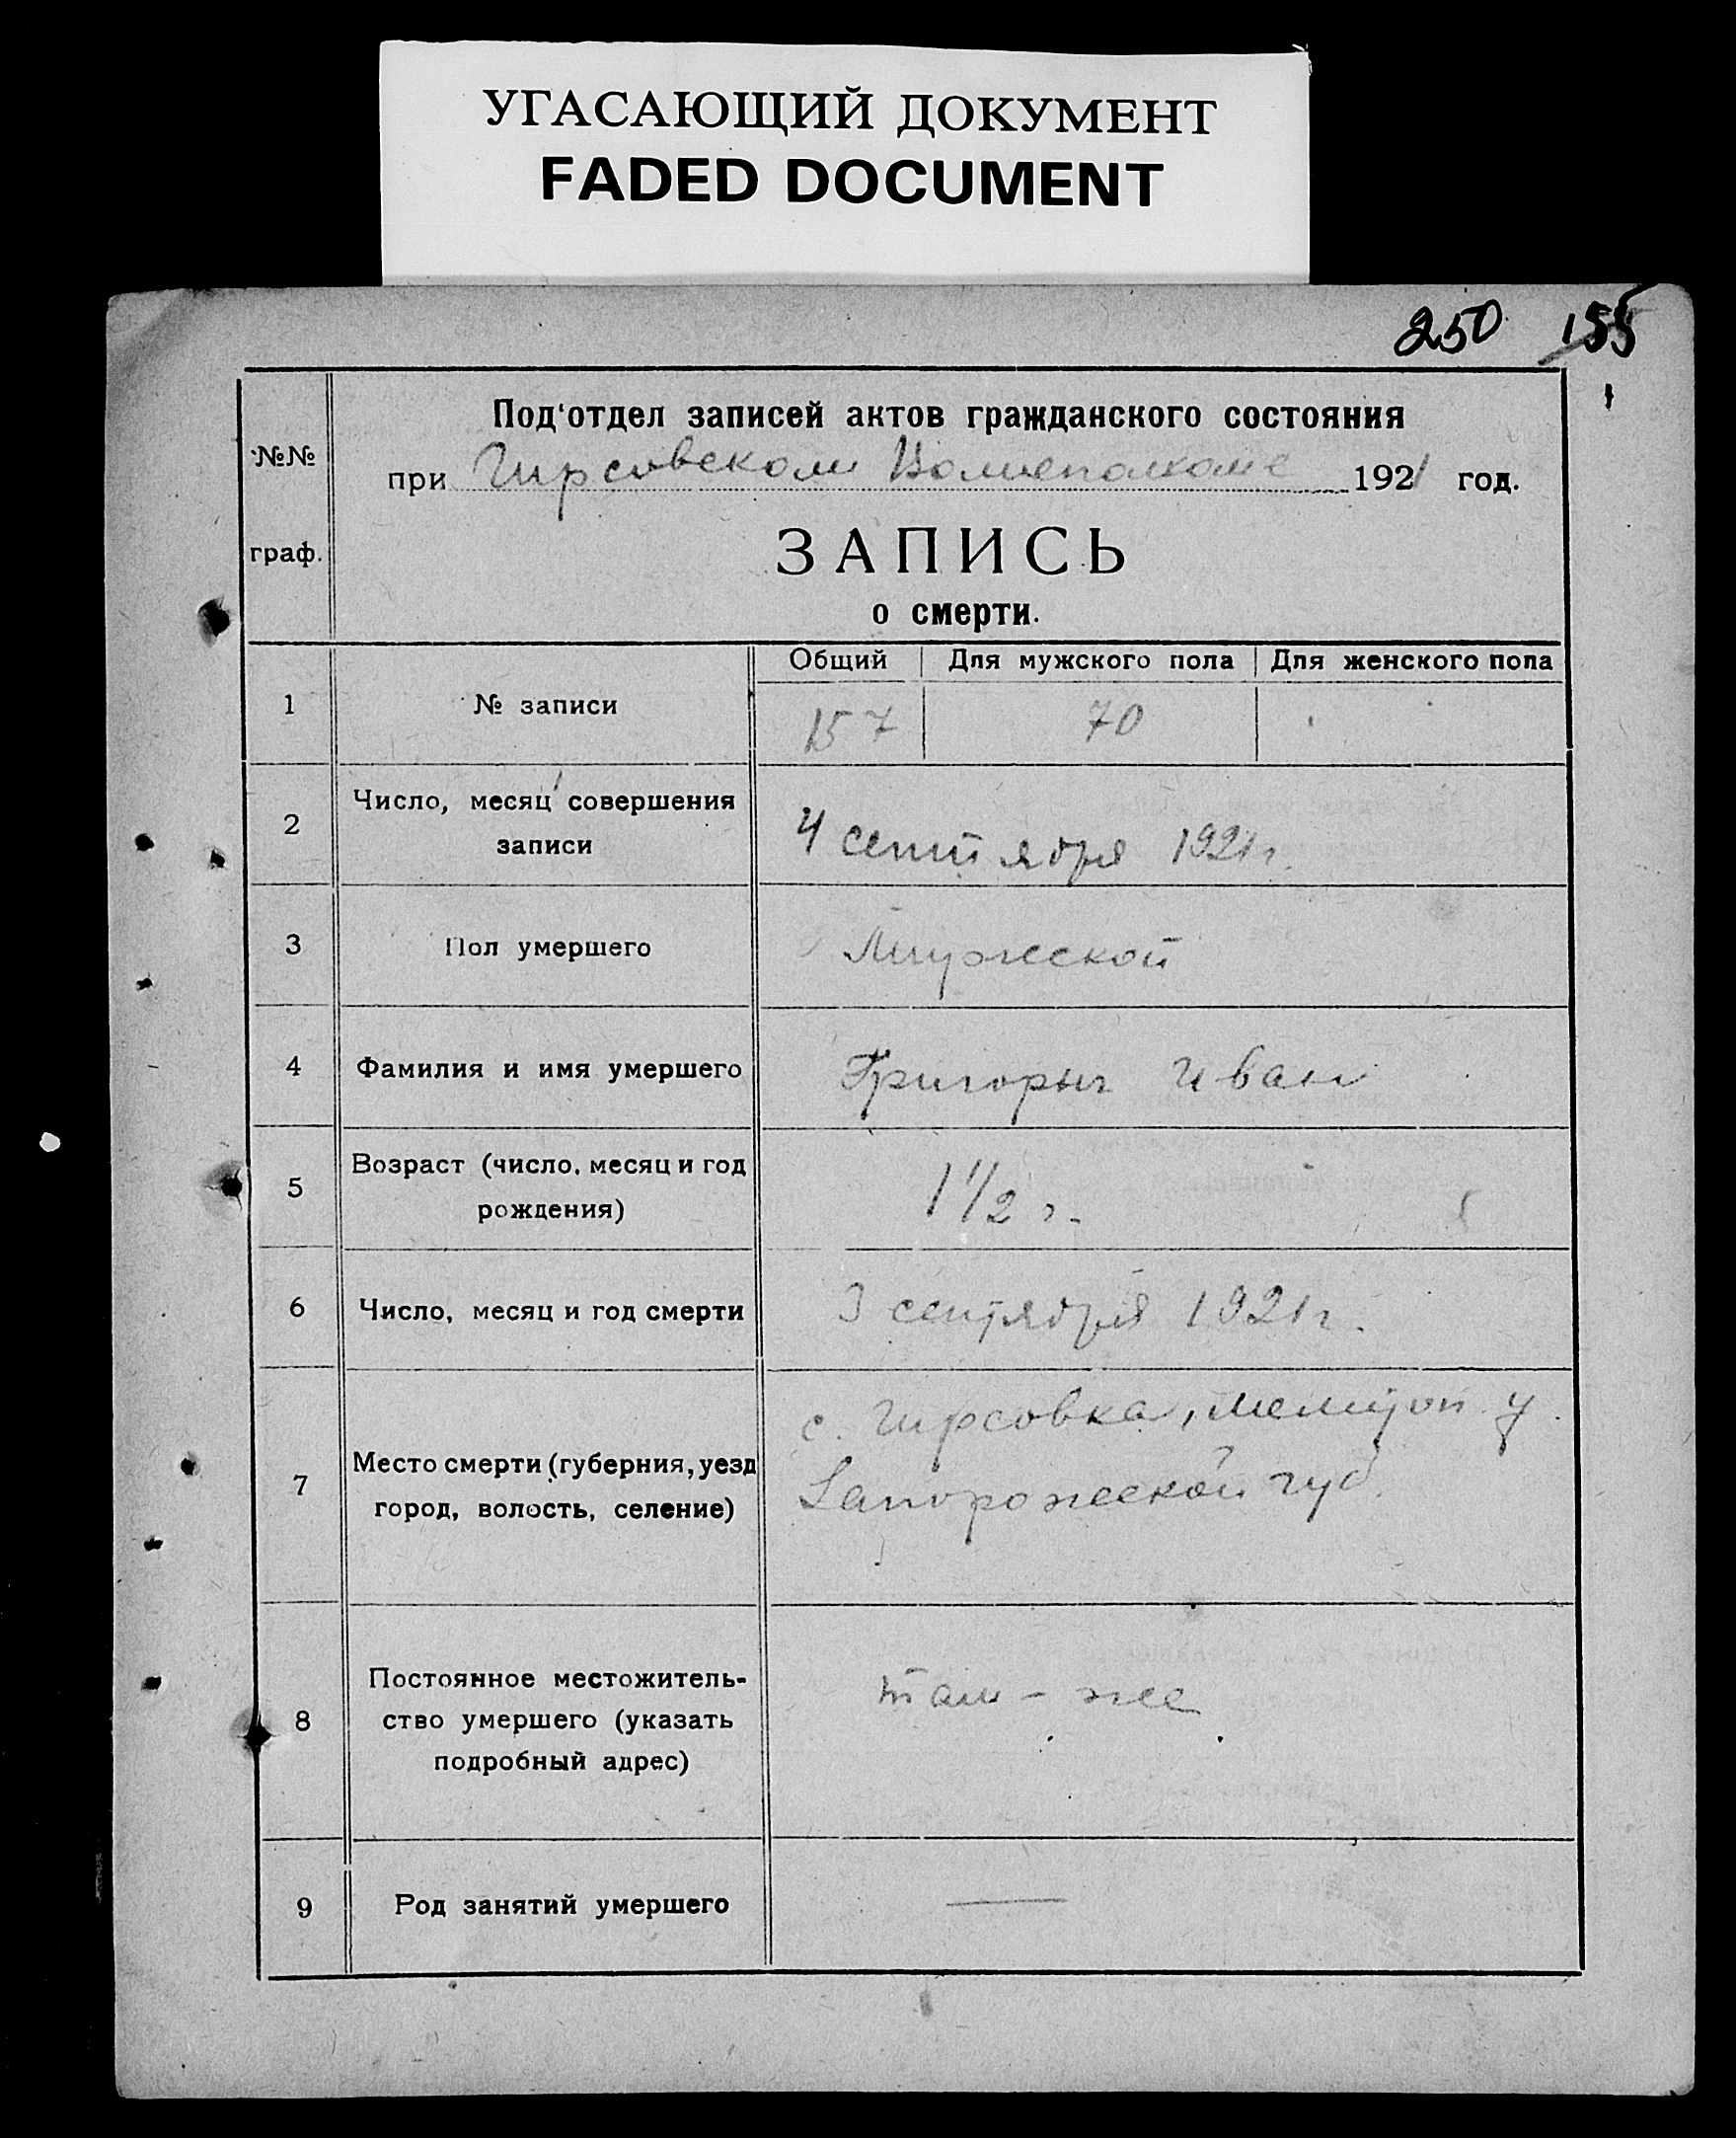 УГАСАЮЩИЙ ДОКУМЕНТ
FADED DOCUMENT
250 155
№№ граф.
Под'отдел записей актов гражданского состояния
при Гирсовском Волисполкоме 1921 год.
ЗАПИСЬ
о смерти.
Общий Для мужского пола Для женского пола
1 № записи 157 70
2 Число, месяц совершения
записи
4 сентября 1921 г.
3 Пол умершего Мужеской
4 Фамилия и имя умершего Григорьи Иван
5 Возраст (число, месяц и год
рождения)
1 1/2 г.
6 Число, месяц и год смерти 3 сентября 1921 г.
7 Место смерти (губерния, уезд
город, волость, селение)
с. Гирсовка, Мелитоп. у.
Запорожеской губ.
8 Постоянное местожитель-
ство умершего (указать
подробный адрес)
там - же
9 Род занятий умершего —